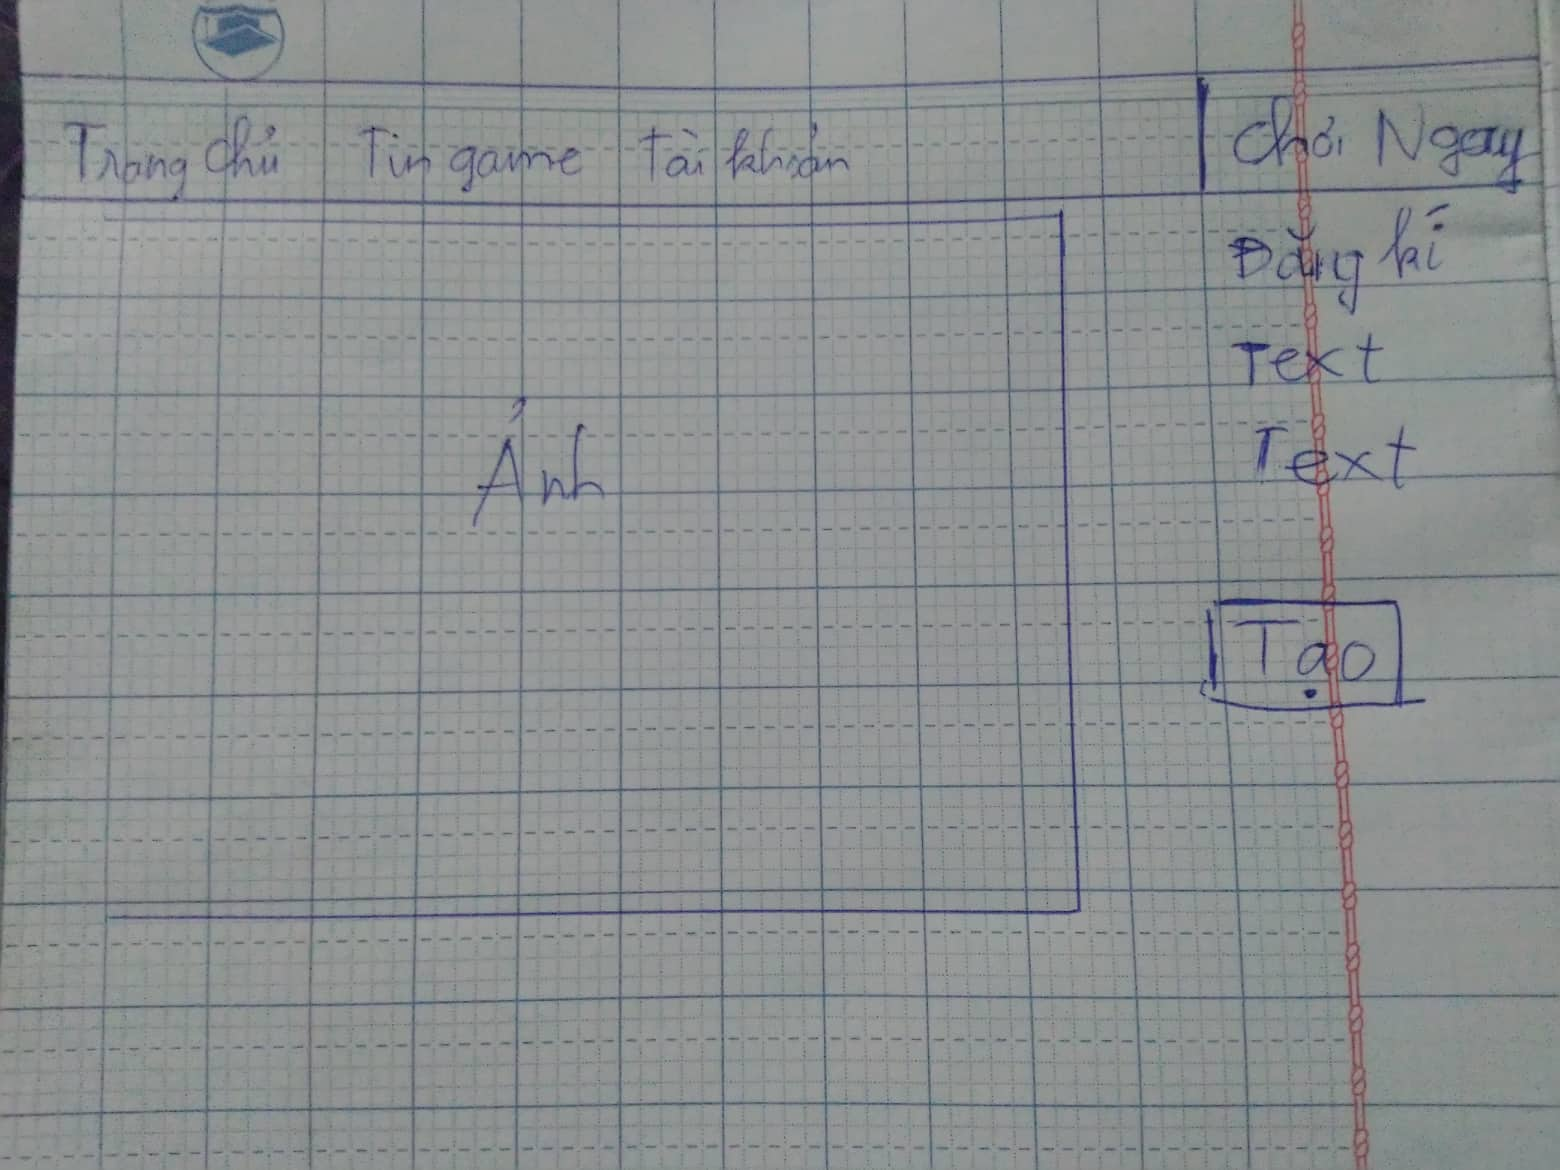 Trang chủ Tin game Tài khoản Chơi Ngay
Đăng kí
Text
Ảnh
Text
Tạo